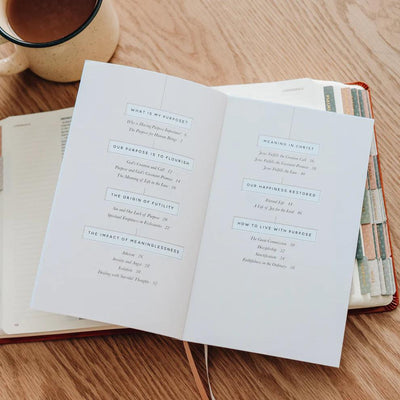 WHAT IS MY PURPOSE?
Why is Having Purpose Important? 6
The Purpose for Human Beings 7
OUR PURPOSE IS TO FLOURISH
God's Creation and Call 12
Purpose and God's Covenant Promise 14
The Meaning of Life in the Law 16
THE ORIGIN OF FUTILITY
Sin and Our Lack of Purpose 20
Spiritual Emptiness in Ecclesiastes 22
THE IMPACT OF MEANINGLESSNESS
Atheism 26
Anxiety and Anger 28
Isolation 30
Dealing with Suicidal Thoughts 32
MEANING IN CHRIST
Jesus Fulfills the Creation Call 36
Jesus Fulfills the Covenant Promise 38
Jesus Fulfills the Law
OUR HAPPINESS RESTORED
Eternal Life
A Life of Joy for the Lord 46
HOW TO LIVE WITH PURPOSE
The Great Commission 50
Discipleship 52
Sanctification 54
Faithfulness in the Ordinary